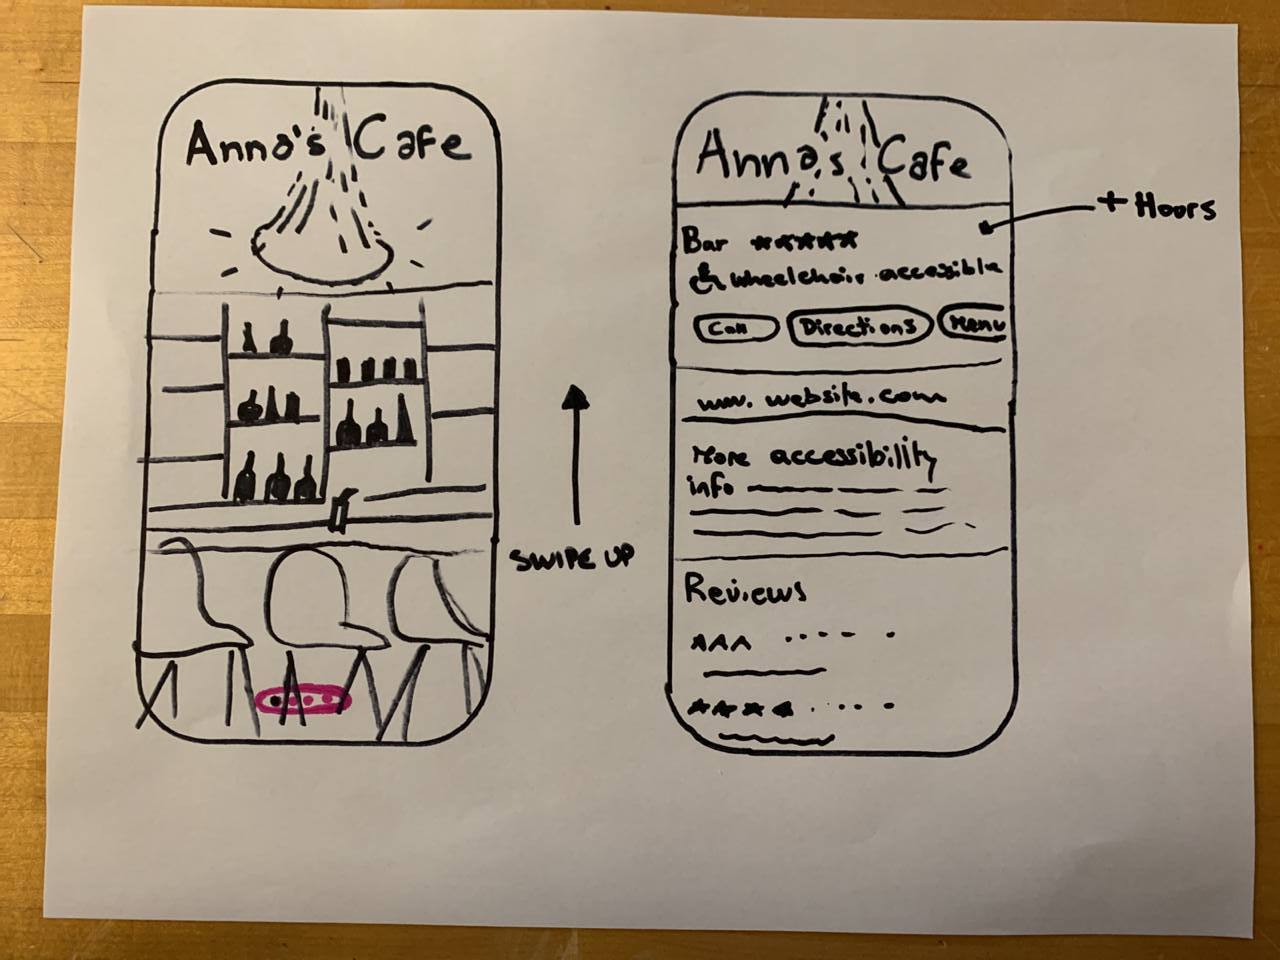 Anna's Cafe
SWIPE UP
Anna's Cafe
+ Hours
Bar ★★★★★
wheelchair accessible
Call Directions Menu
www.website.com
More accessibility
info
Reviews